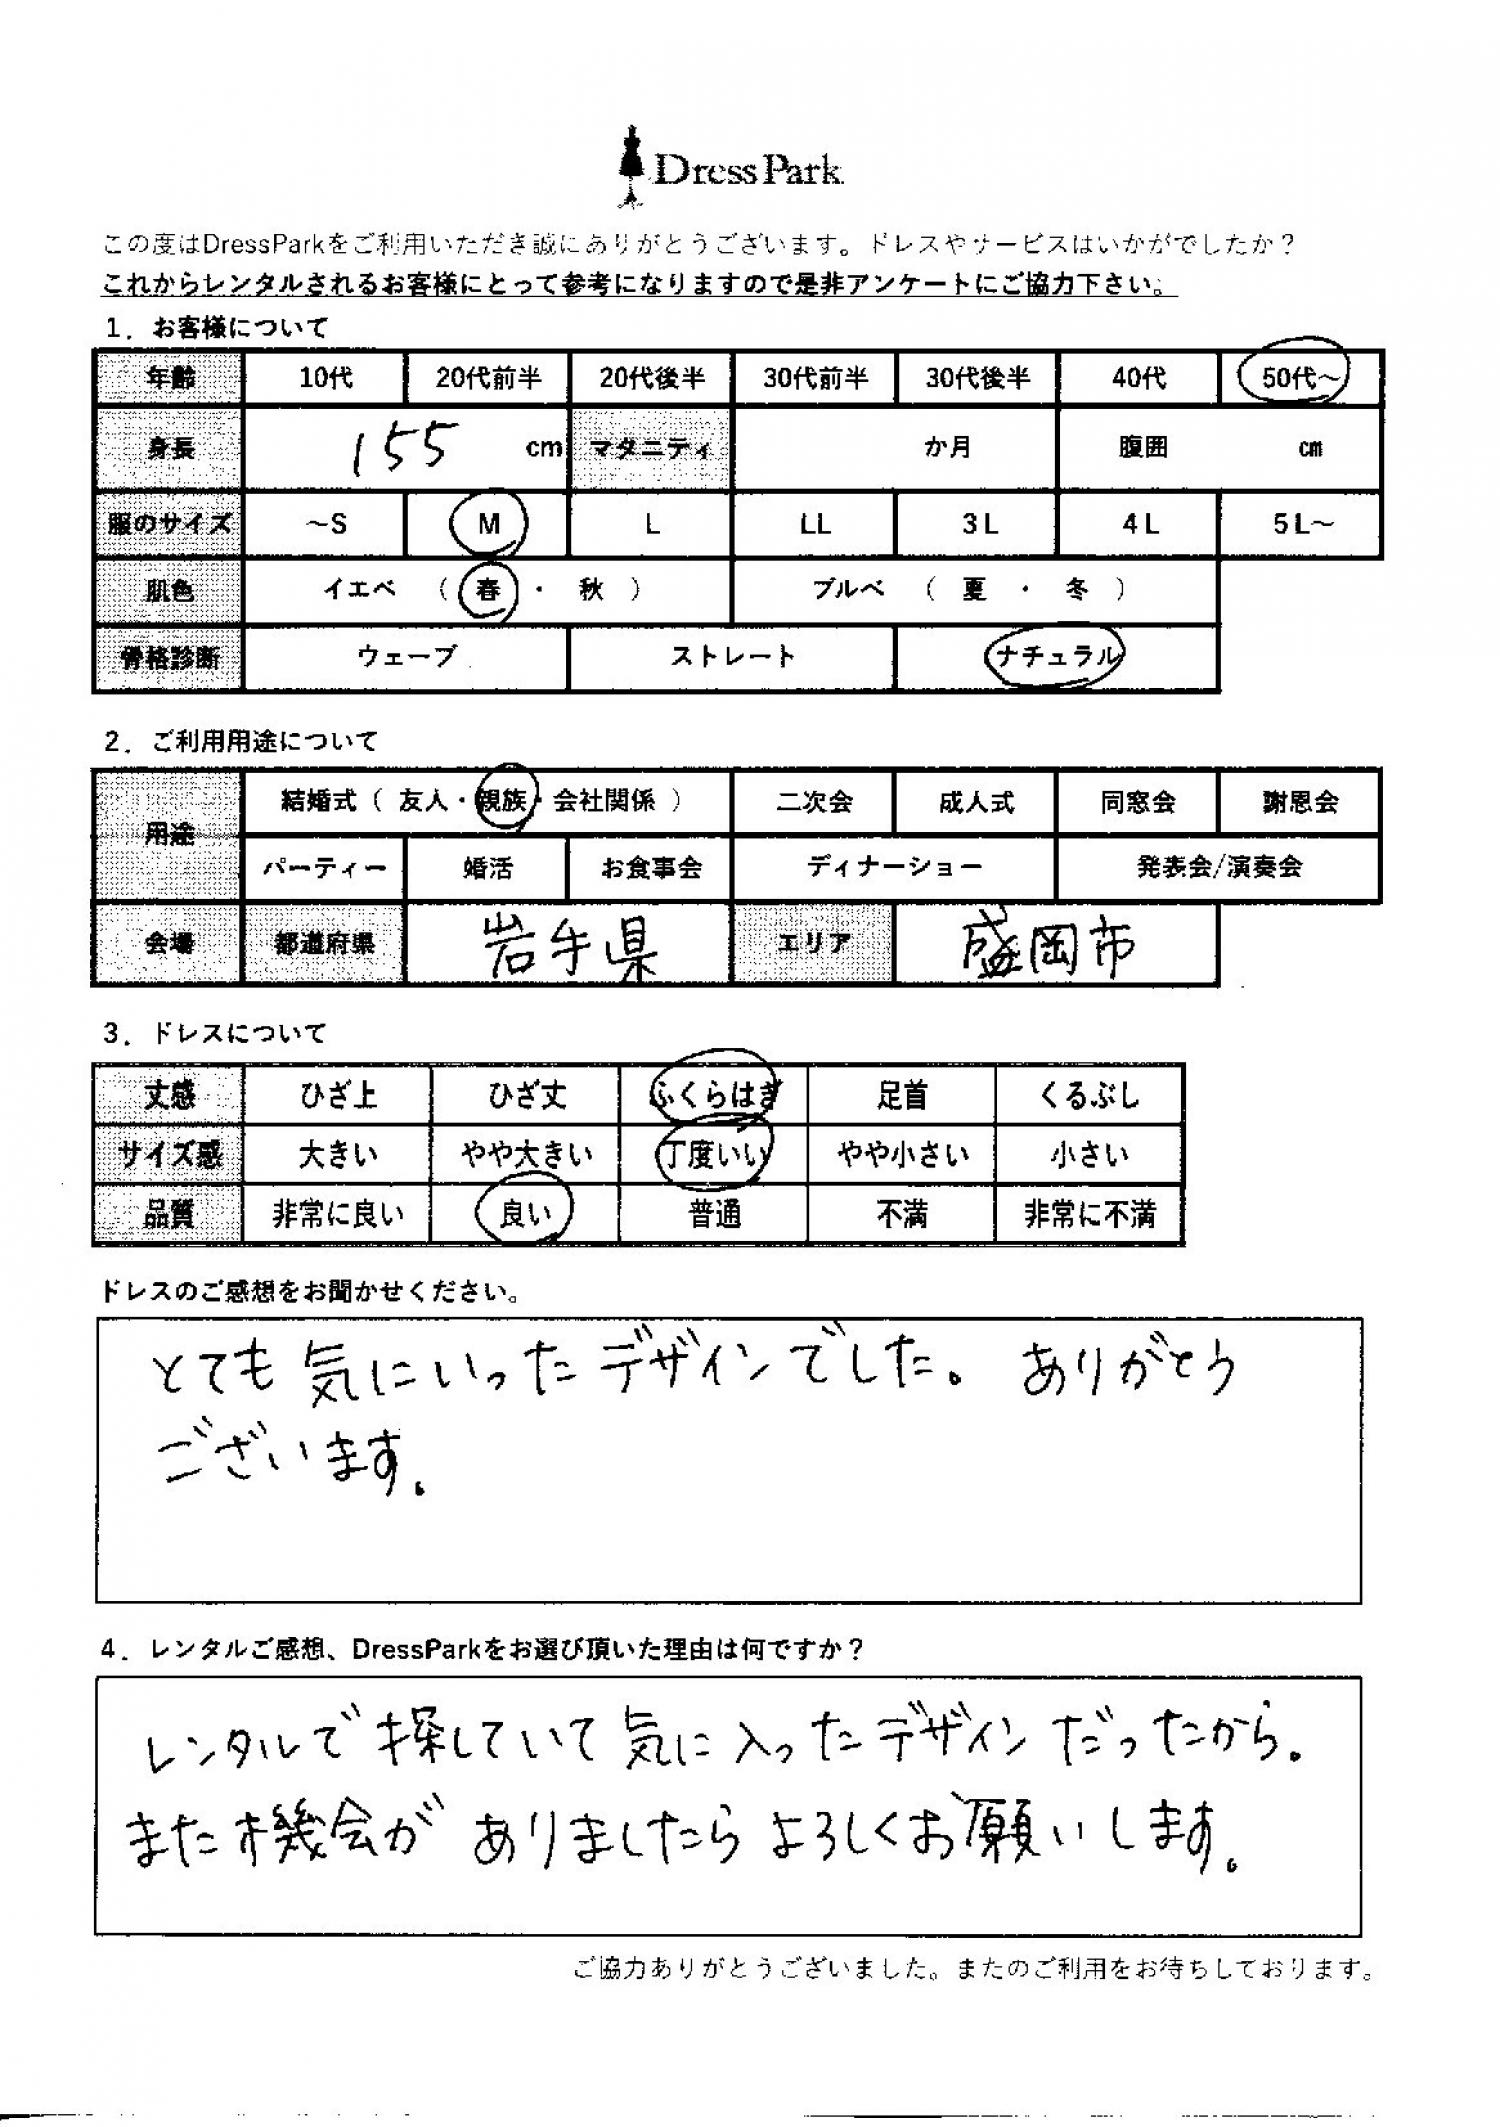 DressPark
この度はDressParkをご利用いただき誠にありがとうございます。ドレスやサービスはいかがでしたか？
これからレンタルされるお客様にとって参考になりますので是非アンケートにご協力下さい。
1．お客様について
年齢 10代 20代前半 20代後半 30代前半 30代後半 40代 50代～
身長 155 cm マタニティ か月 腹囲 cm
服のサイズ ～S M L LL 3L 4L 5L～
肌色 イエベ （ 春 ・ 秋 ） ブルベ （ 夏 ・ 冬 ）
骨格診断 ウェーブ ストレート ナチュラル
2．ご利用用途について
用途 結婚式（ 友人・親族・会社関係 ） 二次会 成人式 同窓会 謝恩会
パーティー 婚活 お食事会 ディナーショー 発表会/演奏会
会場 都道府県 岩手県 エリア 盛岡市
3．ドレスについて
丈感 ひざ上 ひざ丈 ふくらはぎ 足首 くるぶし
サイズ感 大きい やや大きい 丁度いい やや小さい 小さい
品質 非常に良い 良い 普通 不満 非常に不満
ドレスのご感想をお聞かせください。
とても気にいったデザインでした。ありがとう
ございます。
4．レンタルご感想、DressParkをお選び頂いた理由は何ですか？
レンタルで探していて気に入ったデザインだったから。
また機会がありましたらよろしくお願いします。
ご協力ありがとうございました。またのご利用をお待ちしております。